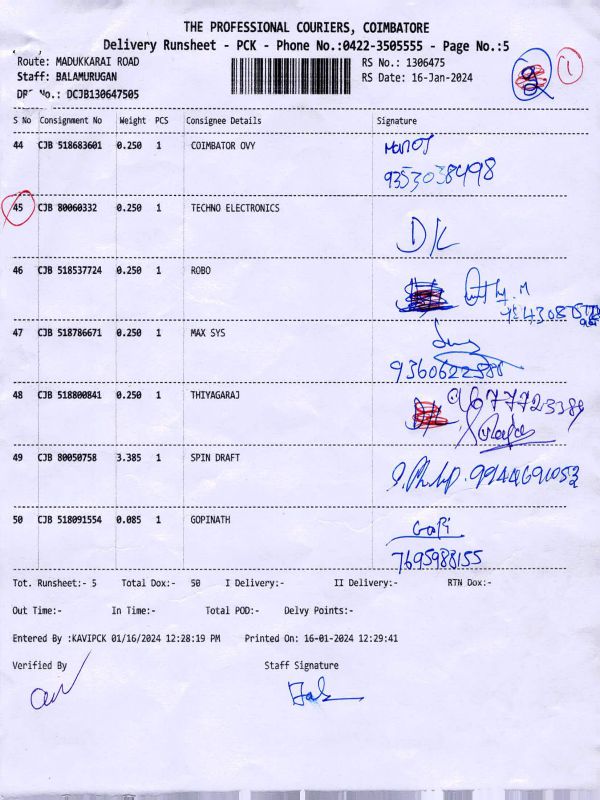 THE PROFESSIONAL COURIERS, COIMBATORE
Delivery Runsheet - PCK - Phone No.:0422-3505555 - Page No.:5
Route: MADUKKARAI ROAD
RS No.: 1306475
Staff: BALAMURUGAN
RS Date: 16-Jan-2024
No.: DCJB130647505
1
S No Consignment No Weight PCS Consignee Details Signature
44 CJB 518683601 0.250 1 COIMBATOR OVY
9353038498
45 CJB 80060332 0.250 1 TECHNO ELECTRONICS
DK
46 CJB 518537724 0.250 1 ROBO
47 CJB 518786671 0.250 1 MAX SYS
48 CJB 518800841 0.250 1 THIYAGARAJ
49 CJB 80050758 3.385 1 SPIN DRAFT
50 CJB 518091554 0.085 1 GOPINATH
Gopi
7695988155
Tot. Runsheet:- 5 Total Dox:- 50 I Delivery:- II Delivery:- RTN Dox:-
Out Time:- In Time:- Total POD:- Delvy Points:-
Entered By :KAVIPCK 01/16/2024 12:28:19 PM Printed On: 16-01-2024 12:29:41
Verified By Staff Signature